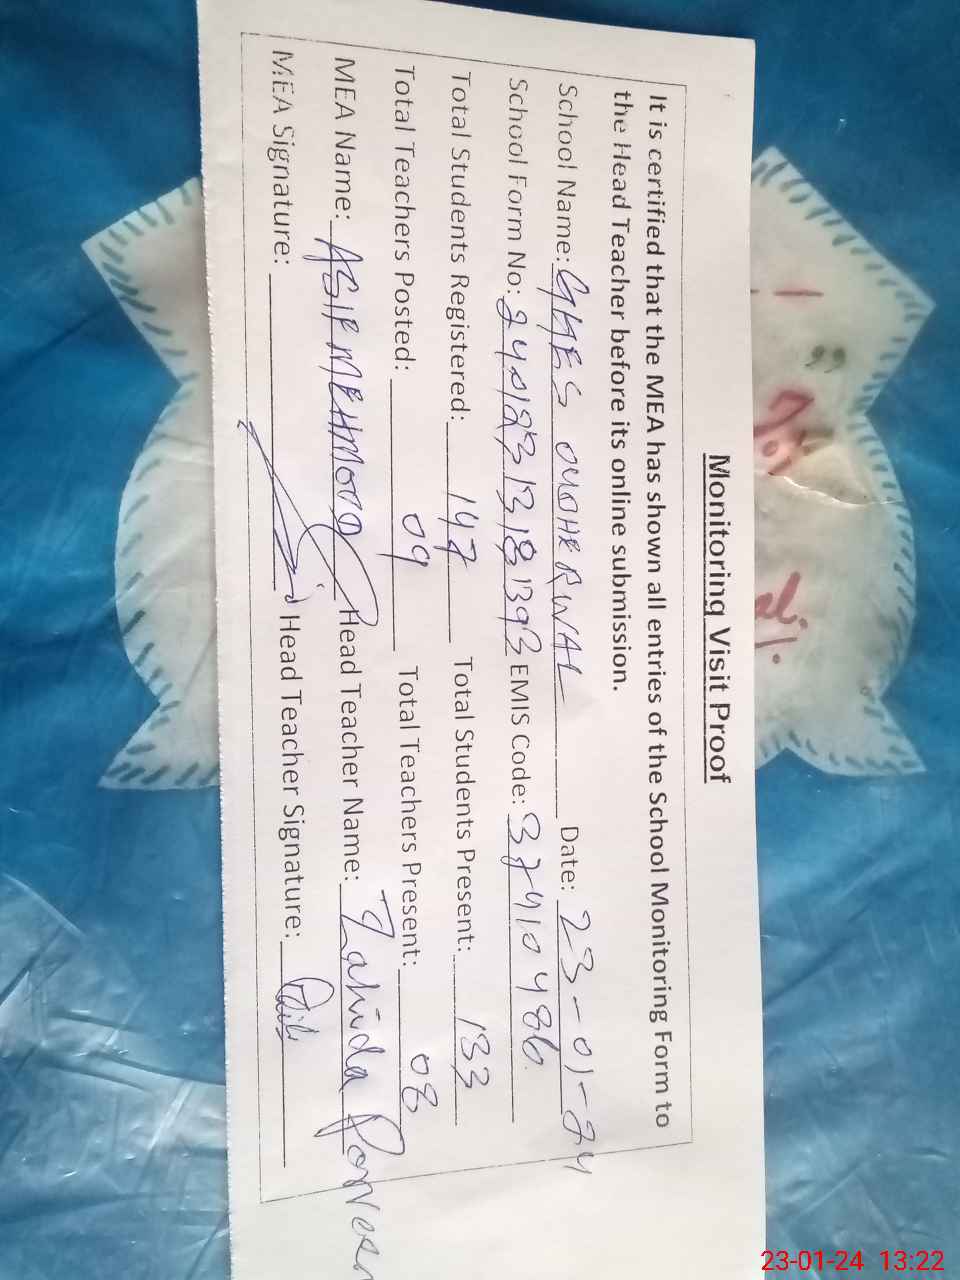 Monitoring Visit Proof
It is certified that the MEA has shown all entries of the School Monitoring Form to
the Head Teacher before its online submission.
School Name: GHES MOHRRWAL Date: 23-01-24
School Form No: EMIS Code: 37410486
Total Students Registered: 147 Total Students Present: 133
Total Teachers Posted: 09 Total Teachers Present: 08
MEA Name: ASIF MEHMOOD Head Teacher Name: Zahida Parveen
MEA Signature: Head Teacher Signature:
23-01-24 13:22